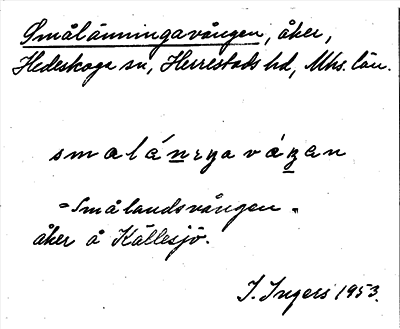 Smålänningavången, åker,
Hedeskoga sn, Herrestads hd, Mhs. län.
smalánıŋaváŋan
"Smålandsvången".
åker å Källesjö.
I. Ingers 1953.